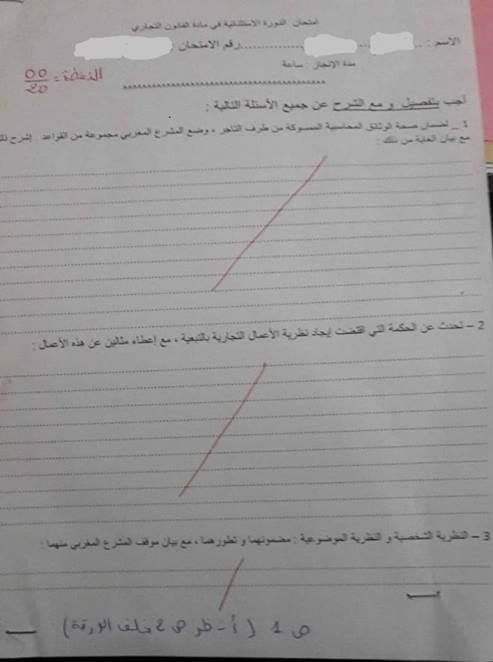 امتحان الدورة الاستثنائية في مادة القانون التجاري
الاسم : ................رقم الامتحان :
مدة الإنجاز : ساعة
النقطة : 00/20
أجب بتفصيل و مع الشرح عن جميع الأسئلة التالية :
1 _ لضمان صحة الوثائق المحاسبية الممسوكة من طرف التاجر ، وضع المشرع المغربي مجموعة من القواعد إشرح ذلك
مع بيان الغاية من ذلك :
2 – تحدث عن الحكمة التي اقتضت إيجاد نظرية الأعمال التجارية بالتبعية ، مع إعطاء مثالين عن هذه الأعمال :
3 – النظرية الشخصية و النظرية الموضوعية : مضمونهما و تطورهما ، مع بيان موقف المشرع المغربي منهما :
ص 1 (أنظر ص 2 خلف الورقة)